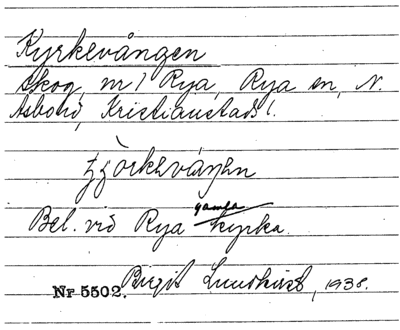 Kyrkevången
skog, m 1 Rya, Rya sn, N.
Åsbohd, Kristianstads l.
Bel. vid Rya gamla kyrka.
Nr 5502. Birgit Lundkvist, 1938.